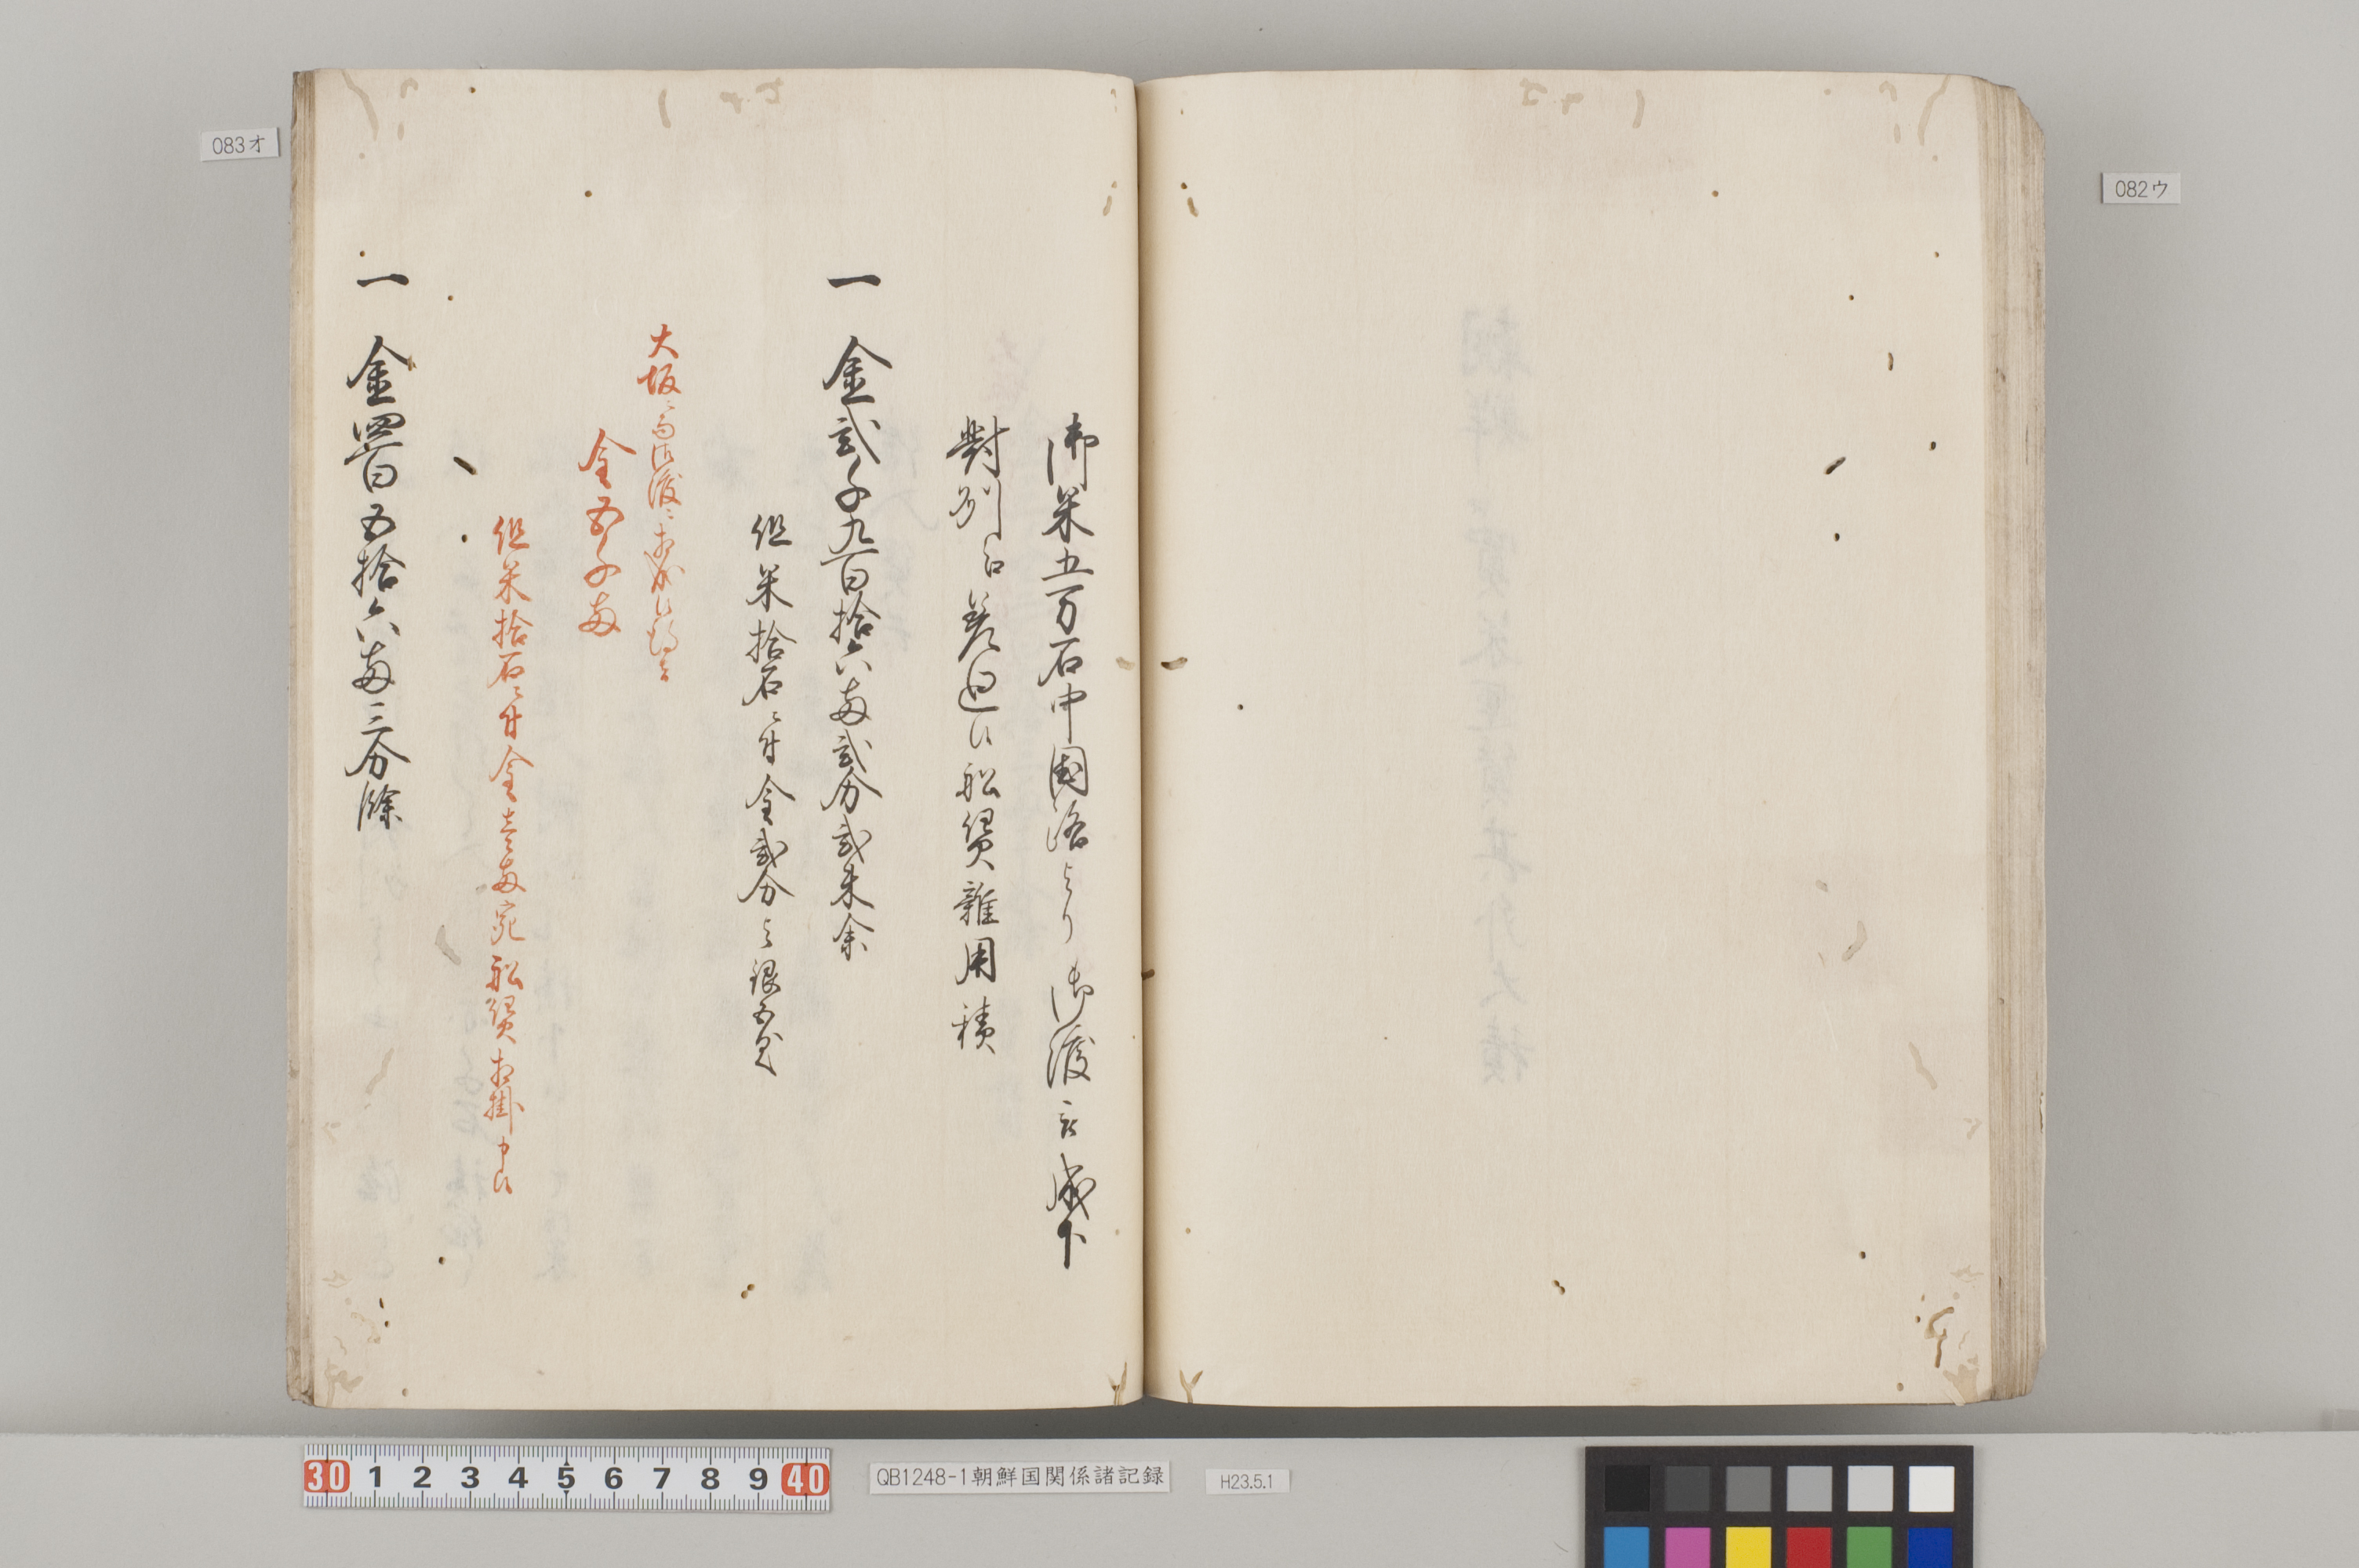 082ウ
083オ
御米五万石中国路より御渡被成下
對州江差廻候船賃雑用積
一 金貳千九百拾六両貳分貳朱余
但米拾石ニ付金貳分与銀五匁
大坂ニ而御渡ニ相成候得者
金五千両
但米拾石ニ付金壱両宛船賃相掛申候
一 金四百五拾六両三分餘
30 1 2 3 4 5 6 7 8 9 40
QB1248-1朝鮮国関係諸記録
H23.5.1